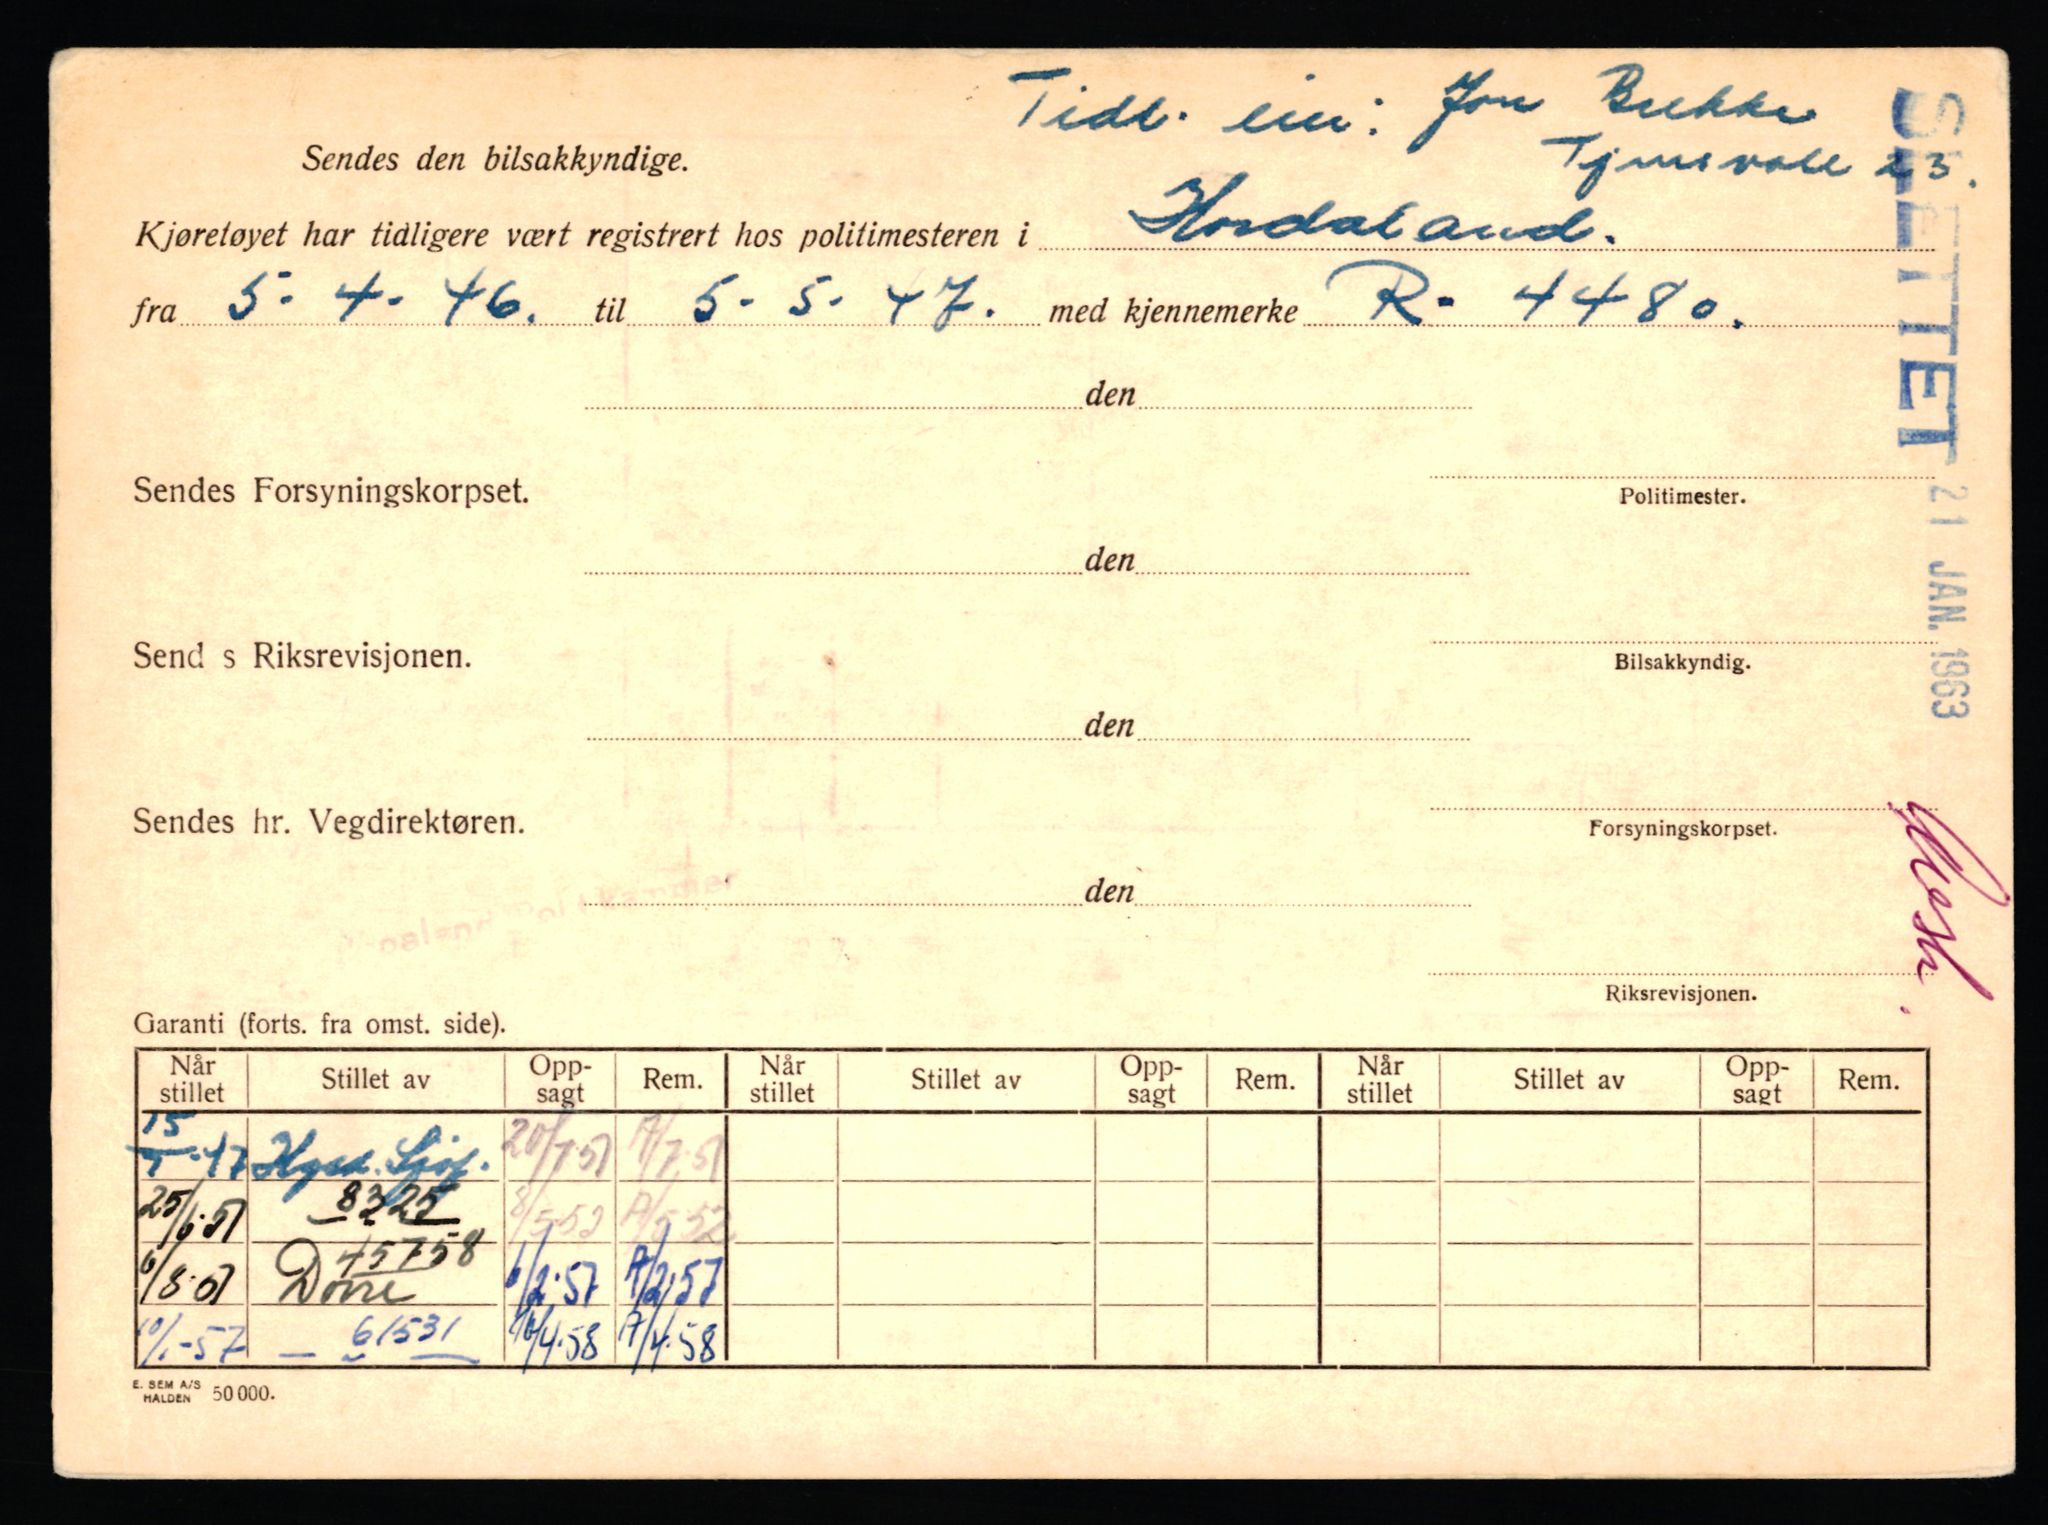 Tidl. eier: Jon Bekke
23.
Sendes den bilsakkyndige.
Kjøretøyet har tidligere vært registrert hos politimesteren i Hordaland.
fra 5. 4. 46. til 5. 5. 47. med kjennemerke R. 4480.
SLETTET 21 JAN. 1963
den
Sendes Forsyningskorpset.
Politimester.
den
Send s Riksrevisjonen.
Bilsakkyndig.
den
Sendes hr. Vegdirektøren.
Forsyningskorpset.
den
Riksrevisjonen.
Garanti (forts. fra omst. side).
Når stillet Stillet av Opp- sagt Rem. Når stillet Stillet av Opp- sagt Rem. Når stillet Stillet av Opp- sagt Rem.
20/7.51 A/7.51
25/6.51 — 8325 8/5.52 A/5.52
45758
Dovre 6/2.57 A/2.57
10/1-57 — 61531 — 10/4.58 A/4.58
E. SEM A/S
HALDEN 50 000.